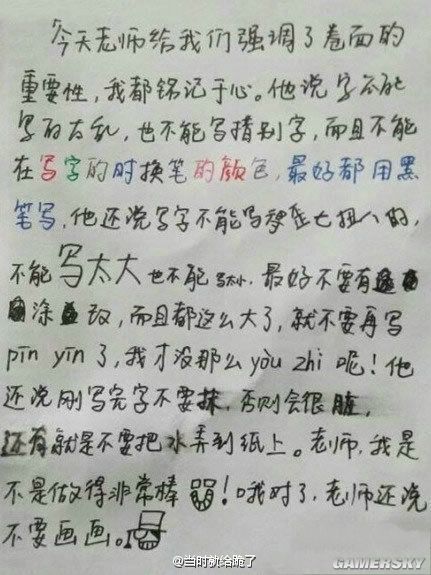 今天老师给我们强调了卷面的
重要性，我都铭记于心。他说字不能
写的太乱，也不能写错别字，而且不能
在写字的时换笔的颜色，最好都用黑
笔写，他还说写字不能写歪七扭八的，
不能写太大也不能写太小，最好不要有
涂改，而且都这么大了，就不要再写
pīn yīn了，我才没那么yòu zhi呢！他
还说刚写完字不要抹，否则会很脏，
还有就是不要把水弄到纸上。老师，我是
不是做得非常棒！哦对了，老师还说
不要画画。
@当时就给跪了
GAMERSKY